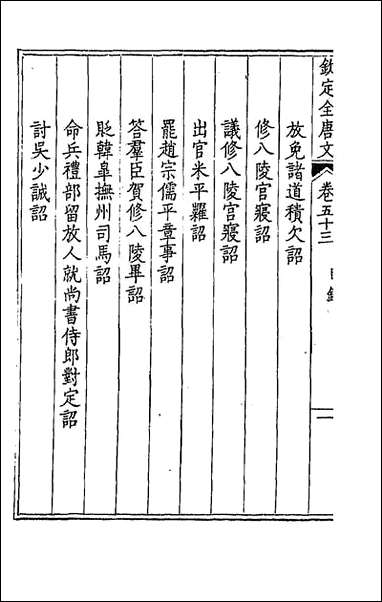 欽定全唐文 卷五十三 目錄 一
放免諸道積欠詔
修八陵宫寢詔
議修八陵宫寢詔
出官米平糶詔
罷趙宗儒平章事詔
答羣臣賀修八陵畢詔
貶韓臯撫州司馬詔
命兵禮部留放人就尚書侍郎對定詔
討吳少誠詔